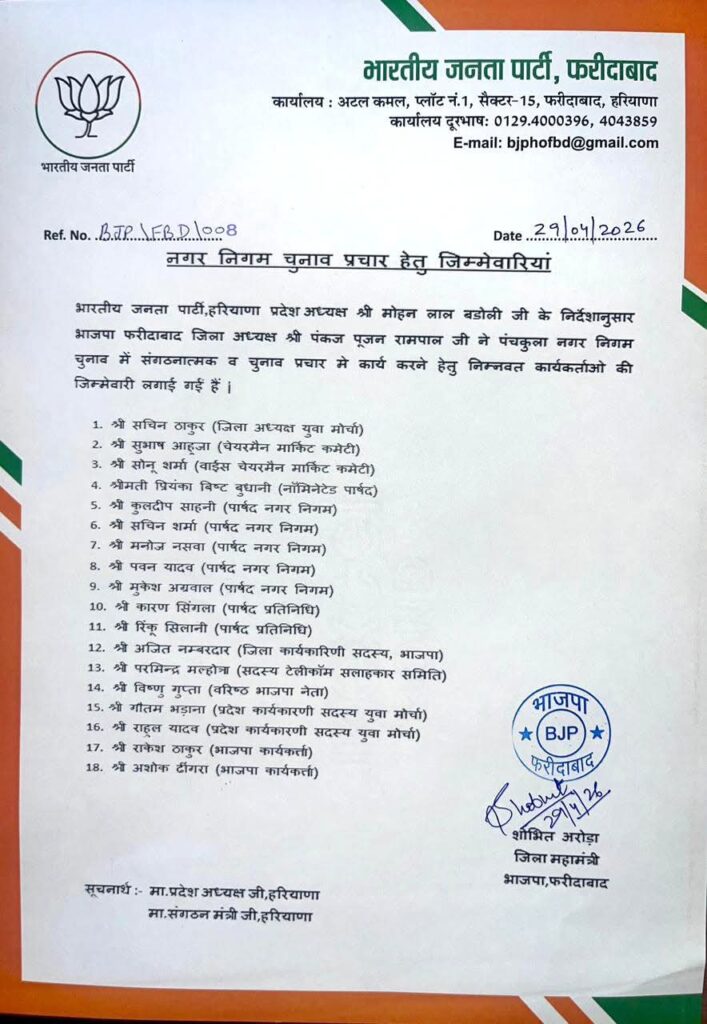 भारतीय जनता पार्टी, फरीदाबाद
कार्यालय : अटल कमल, प्लॉट नं.1, सैक्टर-15, फरीदाबाद, हरियाणा
कार्यालय दूरभाषः 0129.4000396, 4043859
E-mail: bjphofbd@gmail.com
भारतीय जनता पार्टी
Ref. No. BJP\FBD\008
Date 29/04/2026
नगर निगम चुनाव प्रचार हेतु जिम्मेवारियां
भारतीय जनता पार्टी,हरियाणा प्रदेश अध्यक्ष श्री मोहन लाल बडोली जी के निर्देशानुसार
भाजपा फरीदाबाद जिला अध्यक्ष श्री पंकज पूजन रामपाल जी ने पंचकुला नगर निगम
चुनाव में संगठनात्मक व चुनाव प्रचार मे कार्य करने हेतु निम्नवत कार्यकर्ताओ की
जिम्मेवारी लगाई गई हैं |
1. श्री सचिन ठाकुर (जिला अध्यक्ष युवा मोर्चा)
2. श्री सुभाष आहूजा (चेयरमैन मार्किट कमेटी)
3. श्री सोनू शर्मा (वाईस चेयरमैन मार्किट कमेटी)
4. श्रीमती प्रियंका बिष्ट बुधानी (नॉमिनेटेड पार्षद)
5. श्री कुलदीप साहनी (पार्षद नगर निगम)
6. श्री सचिन शर्मा (पार्षद नगर निगम)
7. श्री मनोज नसवा (पार्षद नगर निगम)
8. श्री पवन यादव (पार्षद नगर निगम)
9. श्री मुकेश अग्रवाल (पार्षद नगर निगम)
10. श्री कारण सिंगला (पार्षद प्रतिनिधि)
11. श्री रिंकू सिलानी (पार्षद प्रतिनिधि)
12. श्री अजित नम्बरदार (जिला कार्यकारिणी सदस्य, भाजपा)
13. श्री परमिन्द्र मल्होत्रा (सदस्य टेलीकॉम सलाहकार समिति)
14. श्री विष्णु गुप्ता (वरिष्ठ भाजपा नेता)
15. श्री गौतम भड़ाना (प्रदेश कार्यकारणी सदस्य युवा मोर्चा)
16. श्री राहूल यादव (प्रदेश कार्यकारणी सदस्य युवा मोर्चा)
17. श्री राकेश ठाकुर (भाजपा कार्यकर्त्ता)
18. श्री अशोक ढींगरा (भाजपा कार्यकर्त्ता)
भाजपा
BJP
फरीदाबाद
Shobhit
29/4/26
शोभित अरोड़ा
जिला महामंत्री
भाजपा,फरीदाबाद
सूचनार्थ :- मा.प्रदेश अध्यक्ष जी,हरियाणा
मा.संगठन मंत्री जी,हरियाणा